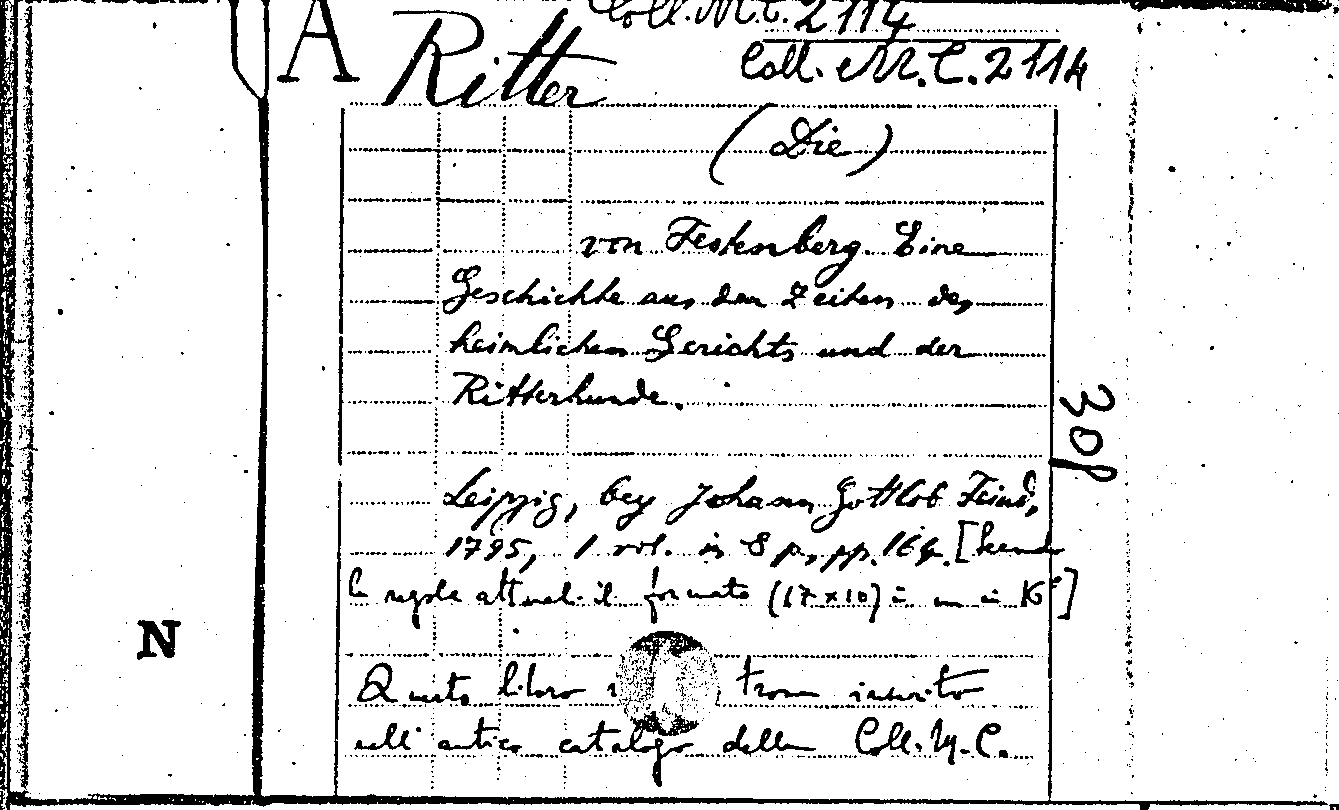 Coll. M.C. 2114
A Ritter Coll. M.C. 2114
(Die)
von Festenberg. Eine
Geschichte aus den Zeiten des
heimlichen Gerichts und der
Ritterbunde.
308
Leipzig, bey Johann Gottlob Feind,
1795, 1 vol. in 8 p., pp. 164. [
le regole attuali il formato (17x10) è un in 16°]
N
Questo libro trova inserito
nell'antico catalogo della Coll. M.C.